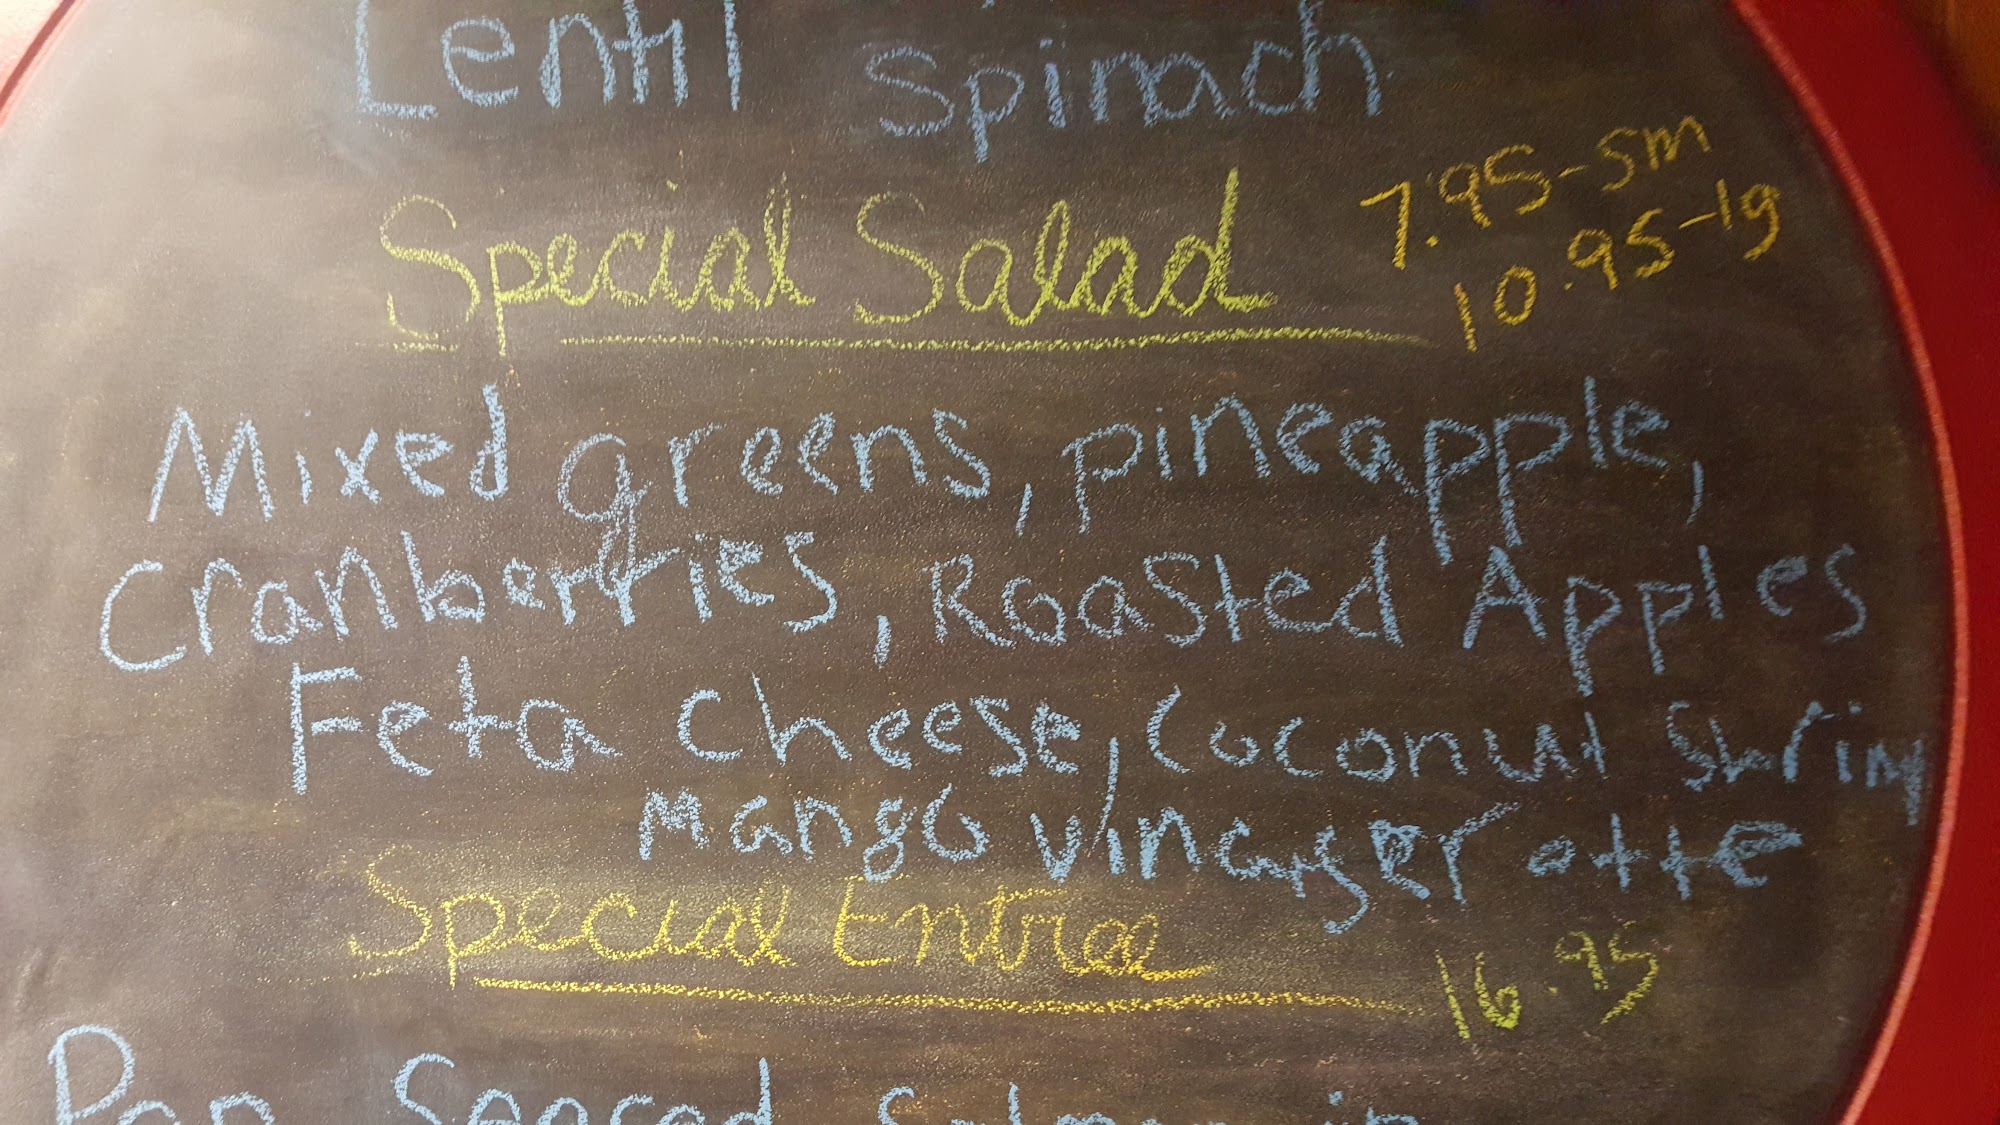 Lentil Spinach
Special Salad 7.95-sm
10.95-lg
Mixed greens, pineapple,
Cranberries, Roasted Apples
Feta cheese, Coconut Shrimp
Mango Vinaigerotte
Special Entrae 16.95
Pan Seared Salmon in